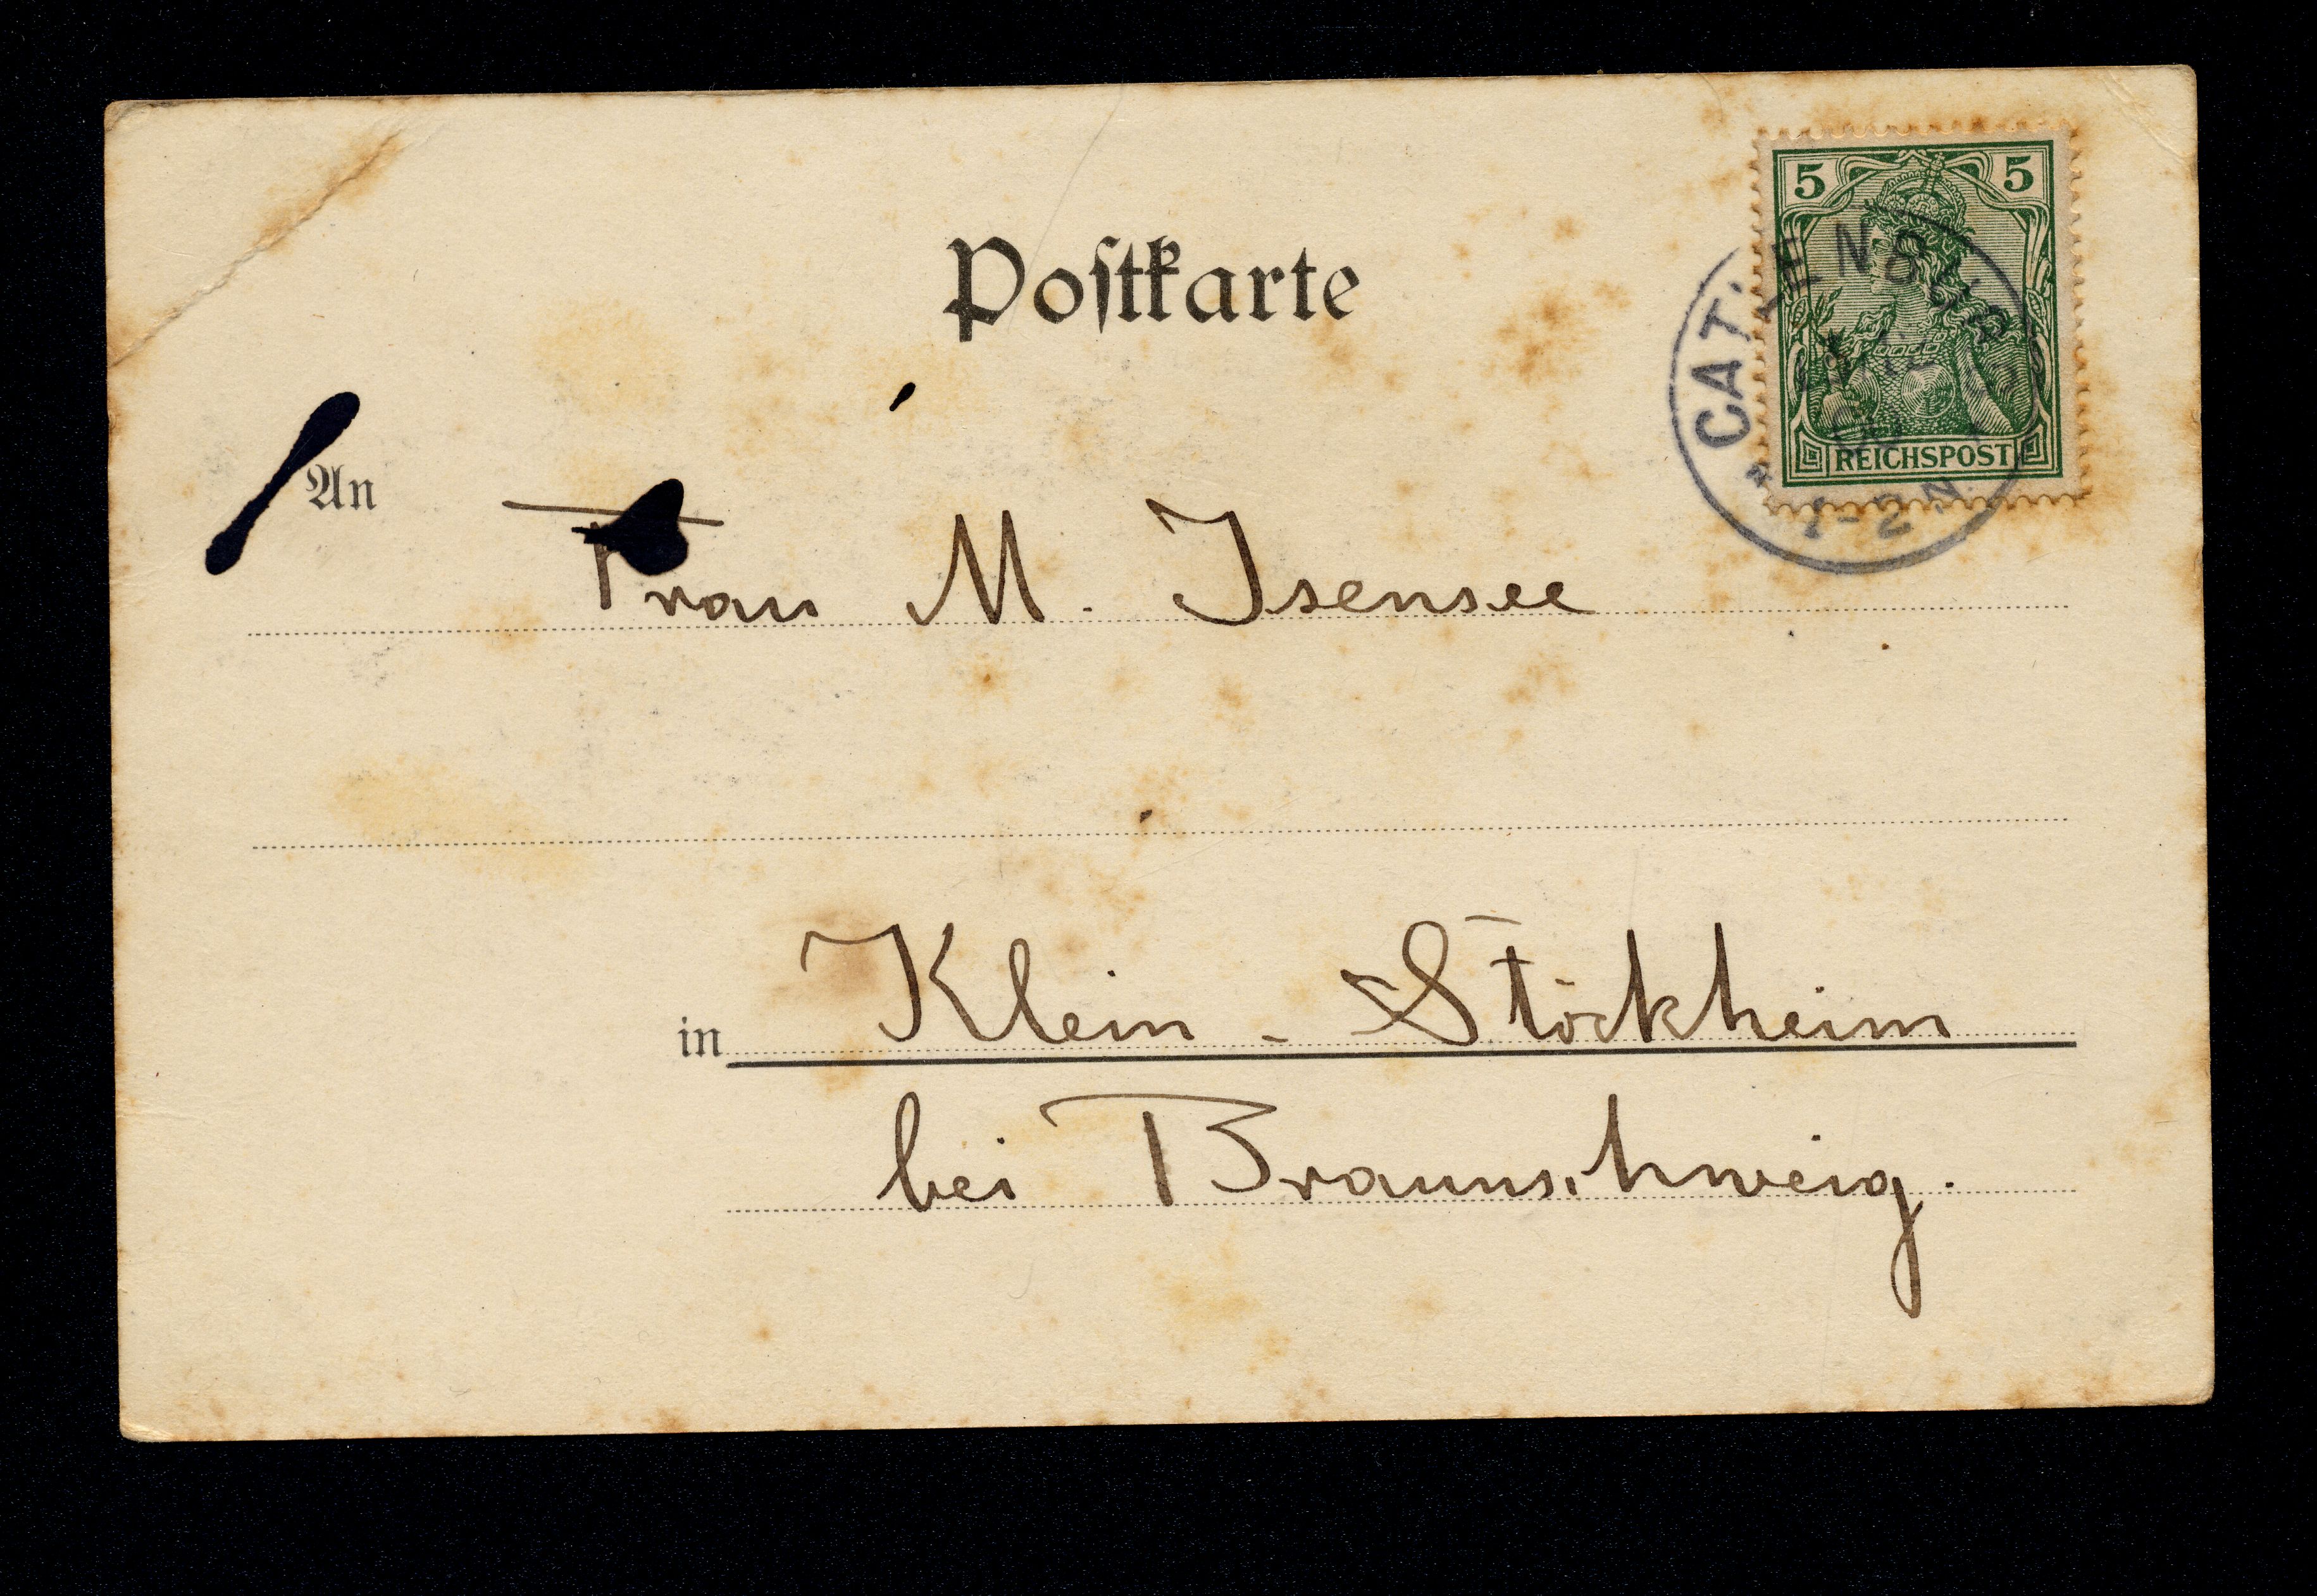 Postkarte
5 5
REICHSPOST
An
Frau M. Isensee
in Klein-Stöckheim
bei Braunschweig.